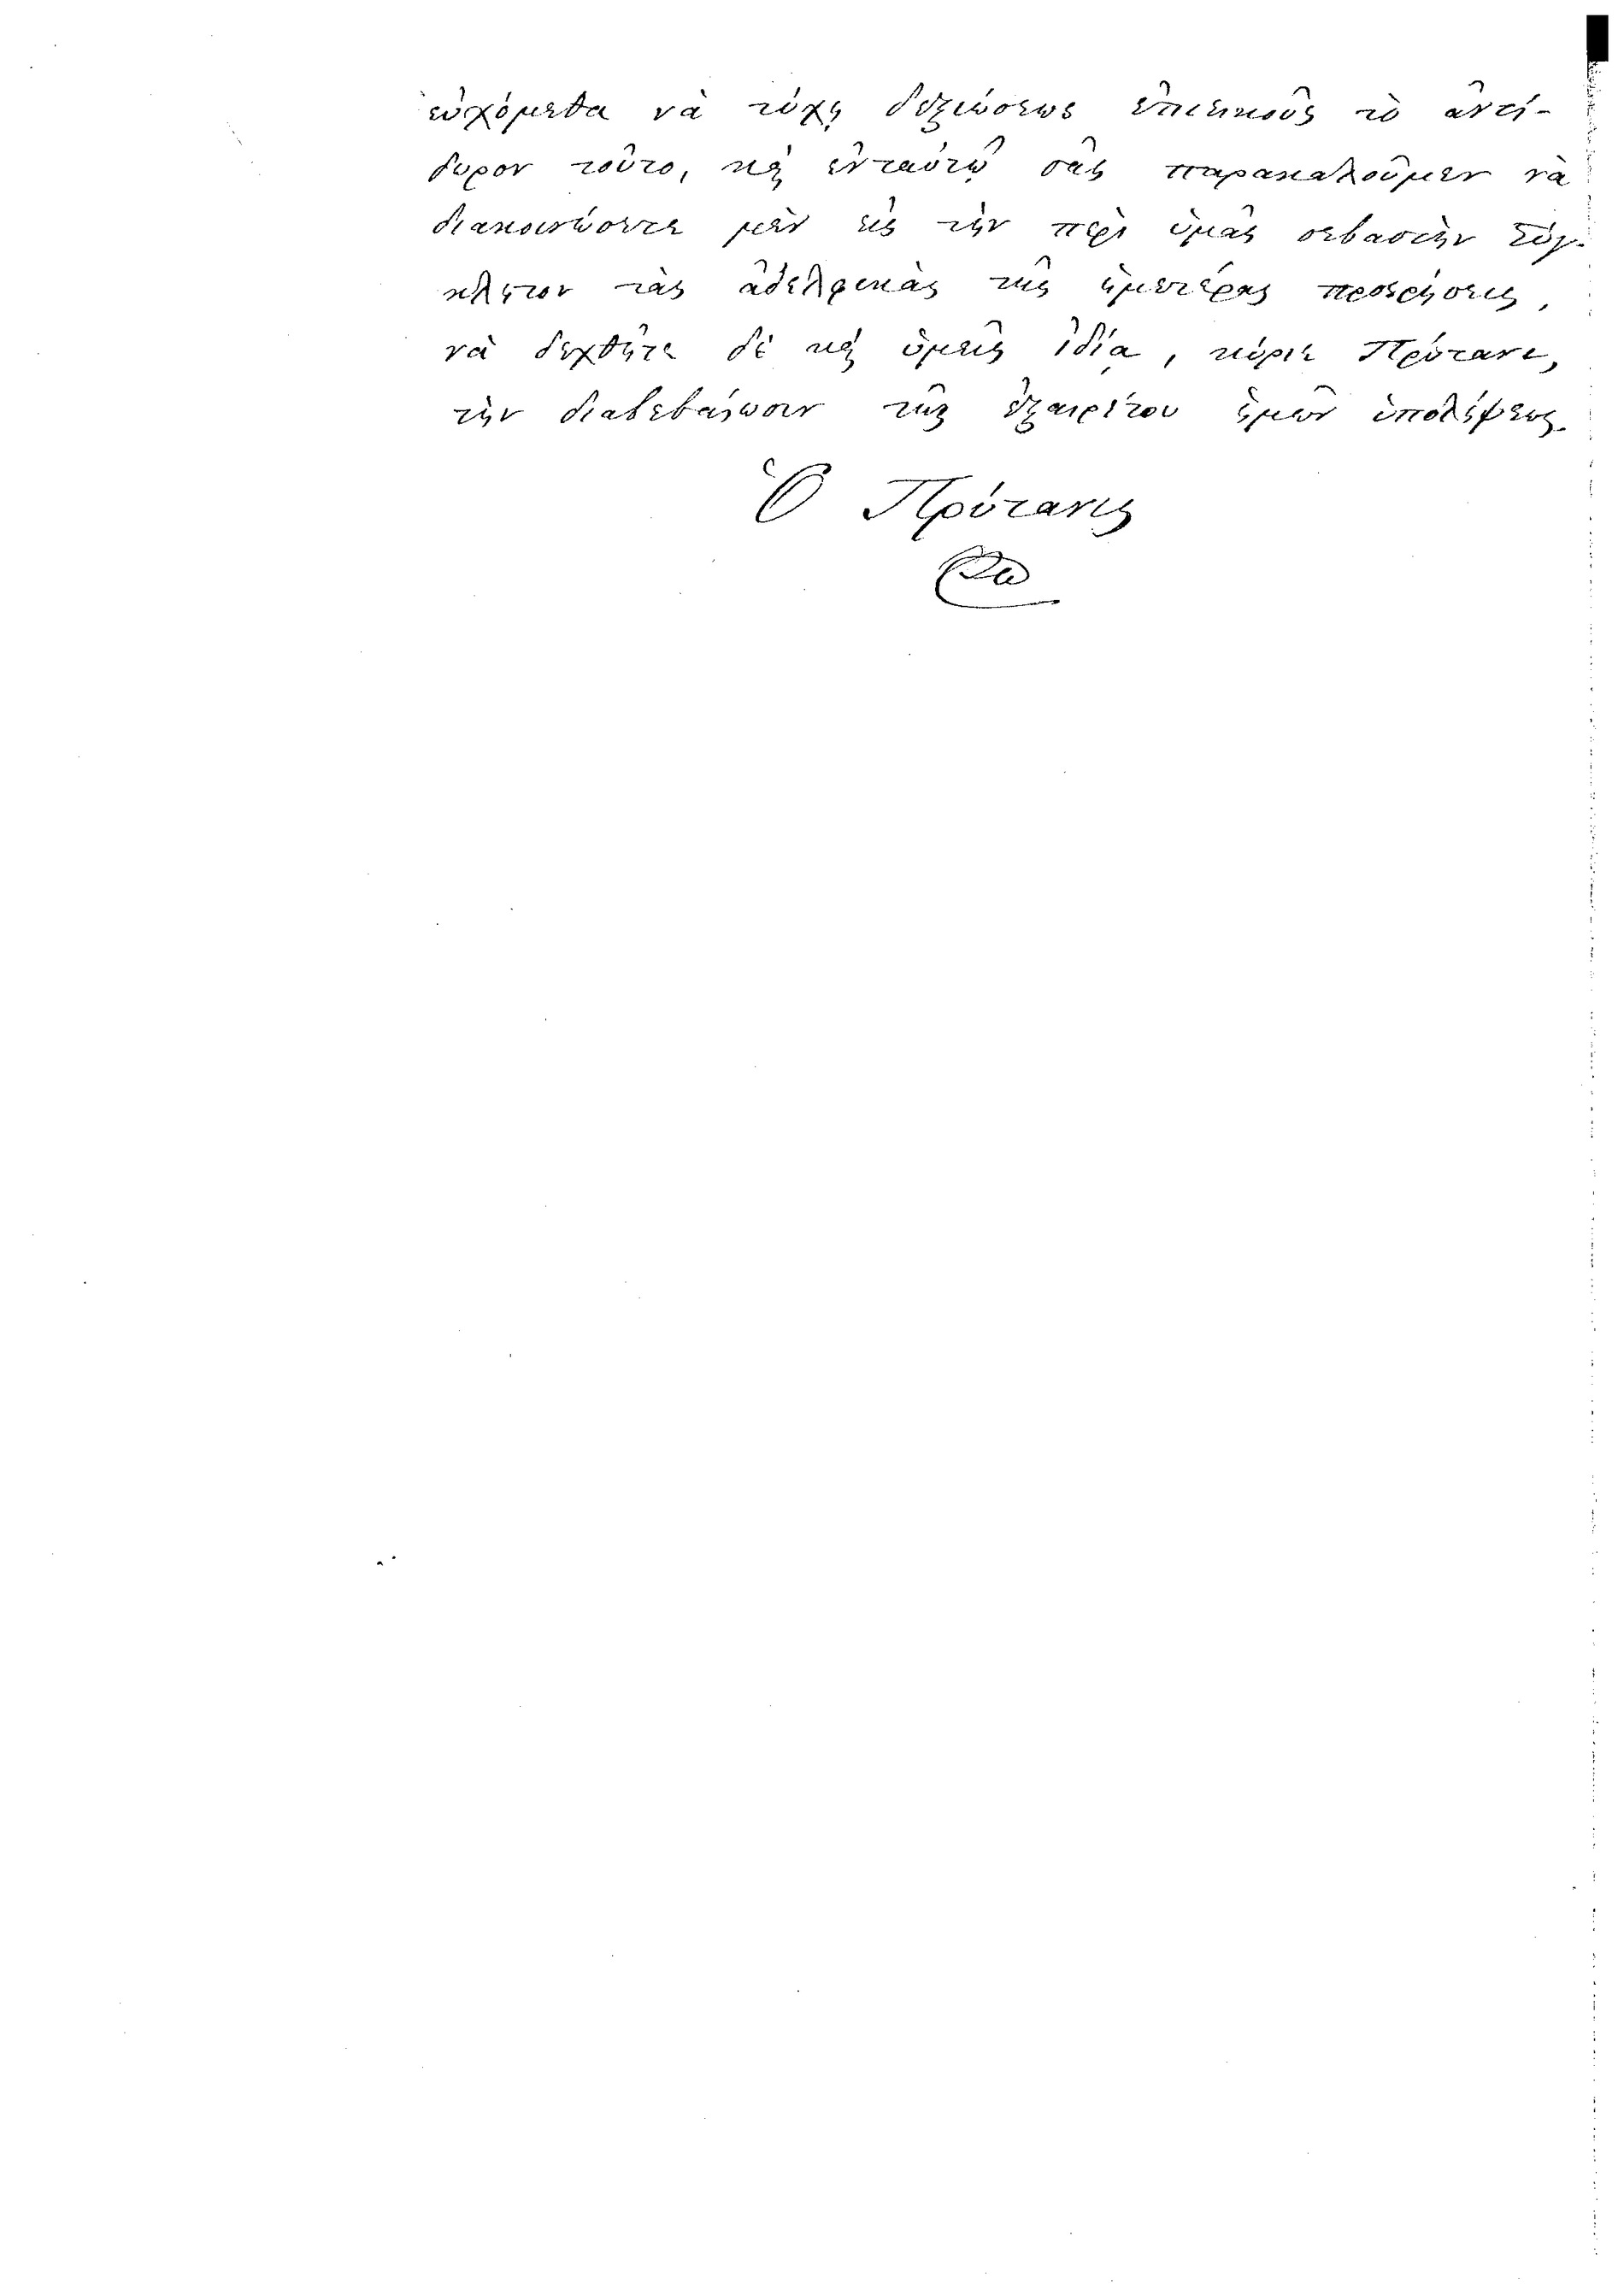 εὐχόμεθα νὰ τύχῃ δεξιώσεως ἐπιεικοῦς τὸ ἀντί-
δωρον τοῦτο, καὶ ἐνταυτῷ σᾶς παρακαλοῦμεν νὰ
διακοινώσητε μὲν εἰς τὴν περὶ ὑμᾶς σεβαστὴν Σύγ-
κλητον τὰς ἀδελφικὰς τῆς ἡμετέρας προσρήσεις,
νὰ δεχθῆτε δὲ καὶ ὑμεῖς ἰδίᾳ, κύριε Πρύτανι,
τὴν διαβεβαίωσιν τῆς ἐξαιρέτου ἡμῶν ὑπολήψεως.
Ὁ Πρύτανις